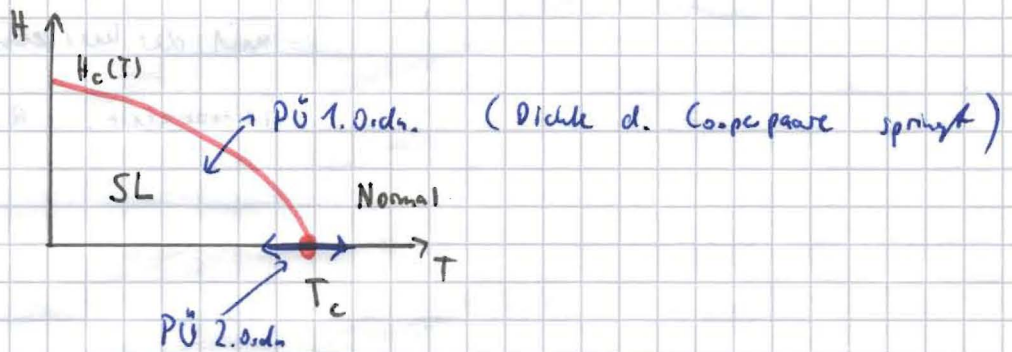 H
H_c(T)
PÜ 1. Ordn. (Dichte d. Cooperpaare springt)
SL
Normal
T
T_c
PÜ 2. Ordn